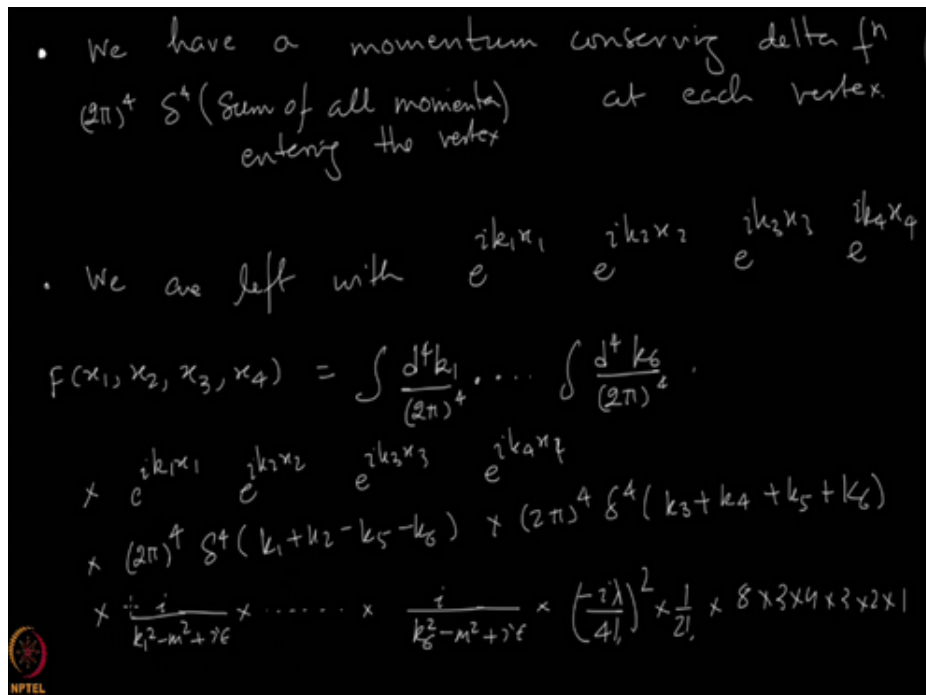 • We have a momentum conserving delta fⁿ
(2π)⁴ δ⁴ (Sum of all momenta) at each vertex.
entering the vertex
• We are left with e^{ik₁x₁} e^{ik₂x₂} e^{ik₃x₃} e^{ik₄x₄}
F(x₁, x₂, x₃, x₄) = ∫ d⁴k₁/(2π)⁴ .... ∫ d⁴k₆/(2π)⁴ .
× e^{ik₁x₁} e^{ik₂x₂} e^{ik₃x₃} e^{ik₄x₄}
× (2π)⁴ δ⁴(k₁+k₂-k₅-k₆) × (2π)⁴ δ⁴(k₃+k₄+k₅+k₆)
× i/(k₁²-m²+iε) × ...... × i/(k₆²-m²+iε) × (-iλ/4!)² × 1/2! × 8×3×4×3×2×1
NPTEL